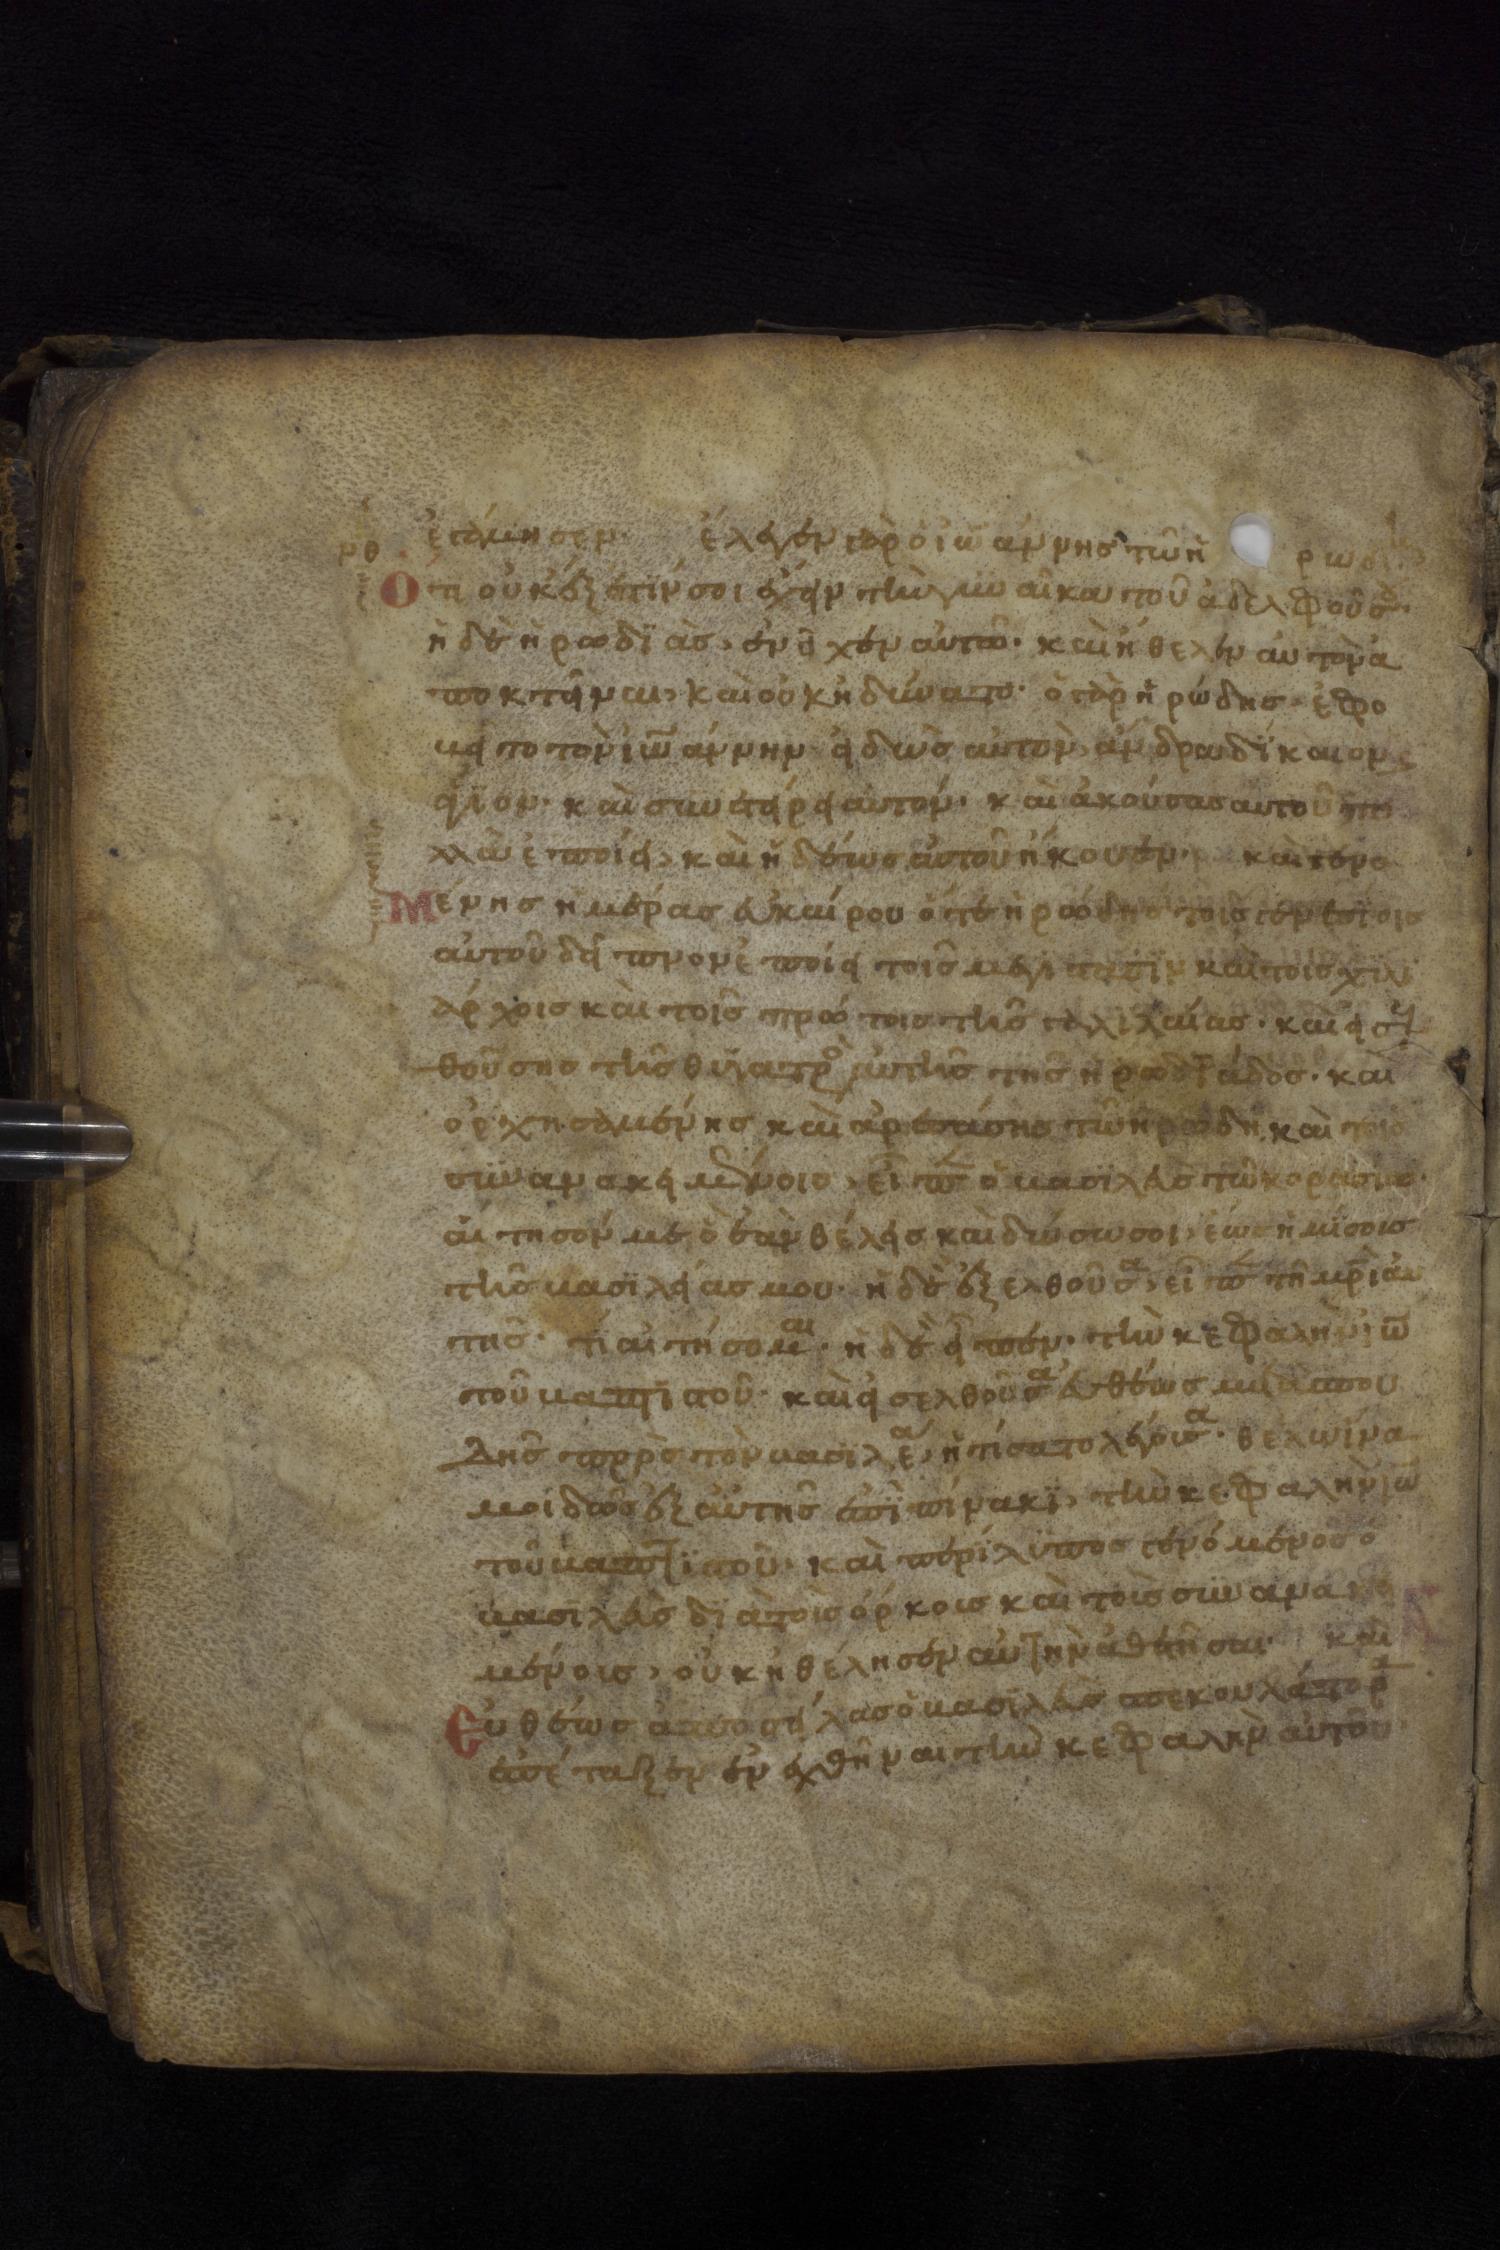 ἐγάμησεν· ἔλεγεν γὰρ ὁ ἰω̅άννης τῶ ἡρώδη
Ὅτι οὐκ ἔξεστίν σοι ἔχειν τὴν γυναῖκα τοῦ ἀδελφοῦ σου·
ἡ δὲ ἡρωδϊὰς, ἐνεῖχεν αὐτῶ· καὶ ἤθελεν αὐτὸν ἀ
ποκτεῖναι, καὶ οὐκ ἠδύνατο· ὁ γὰρ ἡρώδης ἐφο
βεῖτο τὸν ἰω̅άννην εἰδὼς αὐτὸν ἄνδρα δίκαιον
ἅγϊον· καὶ συνετήρει αὐτόν· καὶ ἀκούσας αὐτοῦ πο
λλὰ ἐποίει, καὶ ἡδέως αὐτοῦ ἤκουεν· καὶ γενο
Μένης ἡμέρας εὐκαίρου ὅτε ἡρώδης τοῖς γενεσίοις
αὐτοῦ δεῖπνον ἐποίει τοῖς μεγιστᾶσϊν καὶ τοῖς χιλι
άρχοις καὶ τοῖς πρώτοις τῆς γαλιλαίας· καὶ εἰσελ
θούσης τῆς θυγατρὸς αὐτῆς τῆς ἡρωδϊάδος· καὶ
ὀρχησαμένης καὶ ἀρεσάσης τῶ ἡρώδη καὶ τοῖς
συνανακειμένοις, εἶπεν ὁ βασϊλεὺς τῶ κορασίω·
αἴτησόν με ὃ ἐὰν θέλης καὶ δώσω σοι, ἕως ἡμίσοις
τῆς βασϊλείας μου· ἡ δὲ ἐξελθοῦσα, εἶπε τῆ μρ̅ὶ αὐ
τῆς· τί αἰτήσομαι· ἡ δὲ εἶπεν· τὴν κεφαλὴν ἰω̅
τοῦ βαπτιστοῦ· καὶ εἰσελθοῦσα εὐθέως μετὰ σπου
δῆς πρὸς τὸν βασιλέα, ἠτήσατο λέγουσα· θέλω ἵνα
μοι δῶς ἐξαὐτῆς ἐπὶ πίνακϊ, τὴν κεφαλὴν ἰω̅
τοῦ βαπτϊστοῦ· καὶ περίλϋπος γενόμενος ὁ
βασϊλεὺς δϊὰ τοὺς ὅρκους καὶ τοὺς συνανακει
μένους, οὐκ ἠθέλησεν αὐτὴν ἀθετῆσαι· καὶ
Εὐθέως ἀποστείλας ὁ βασϊλεὺς σπεκουλάτορα
ἐπέταξεν ἐνεχθῆναι τὴν κεφαλὴν αὐτοῦ